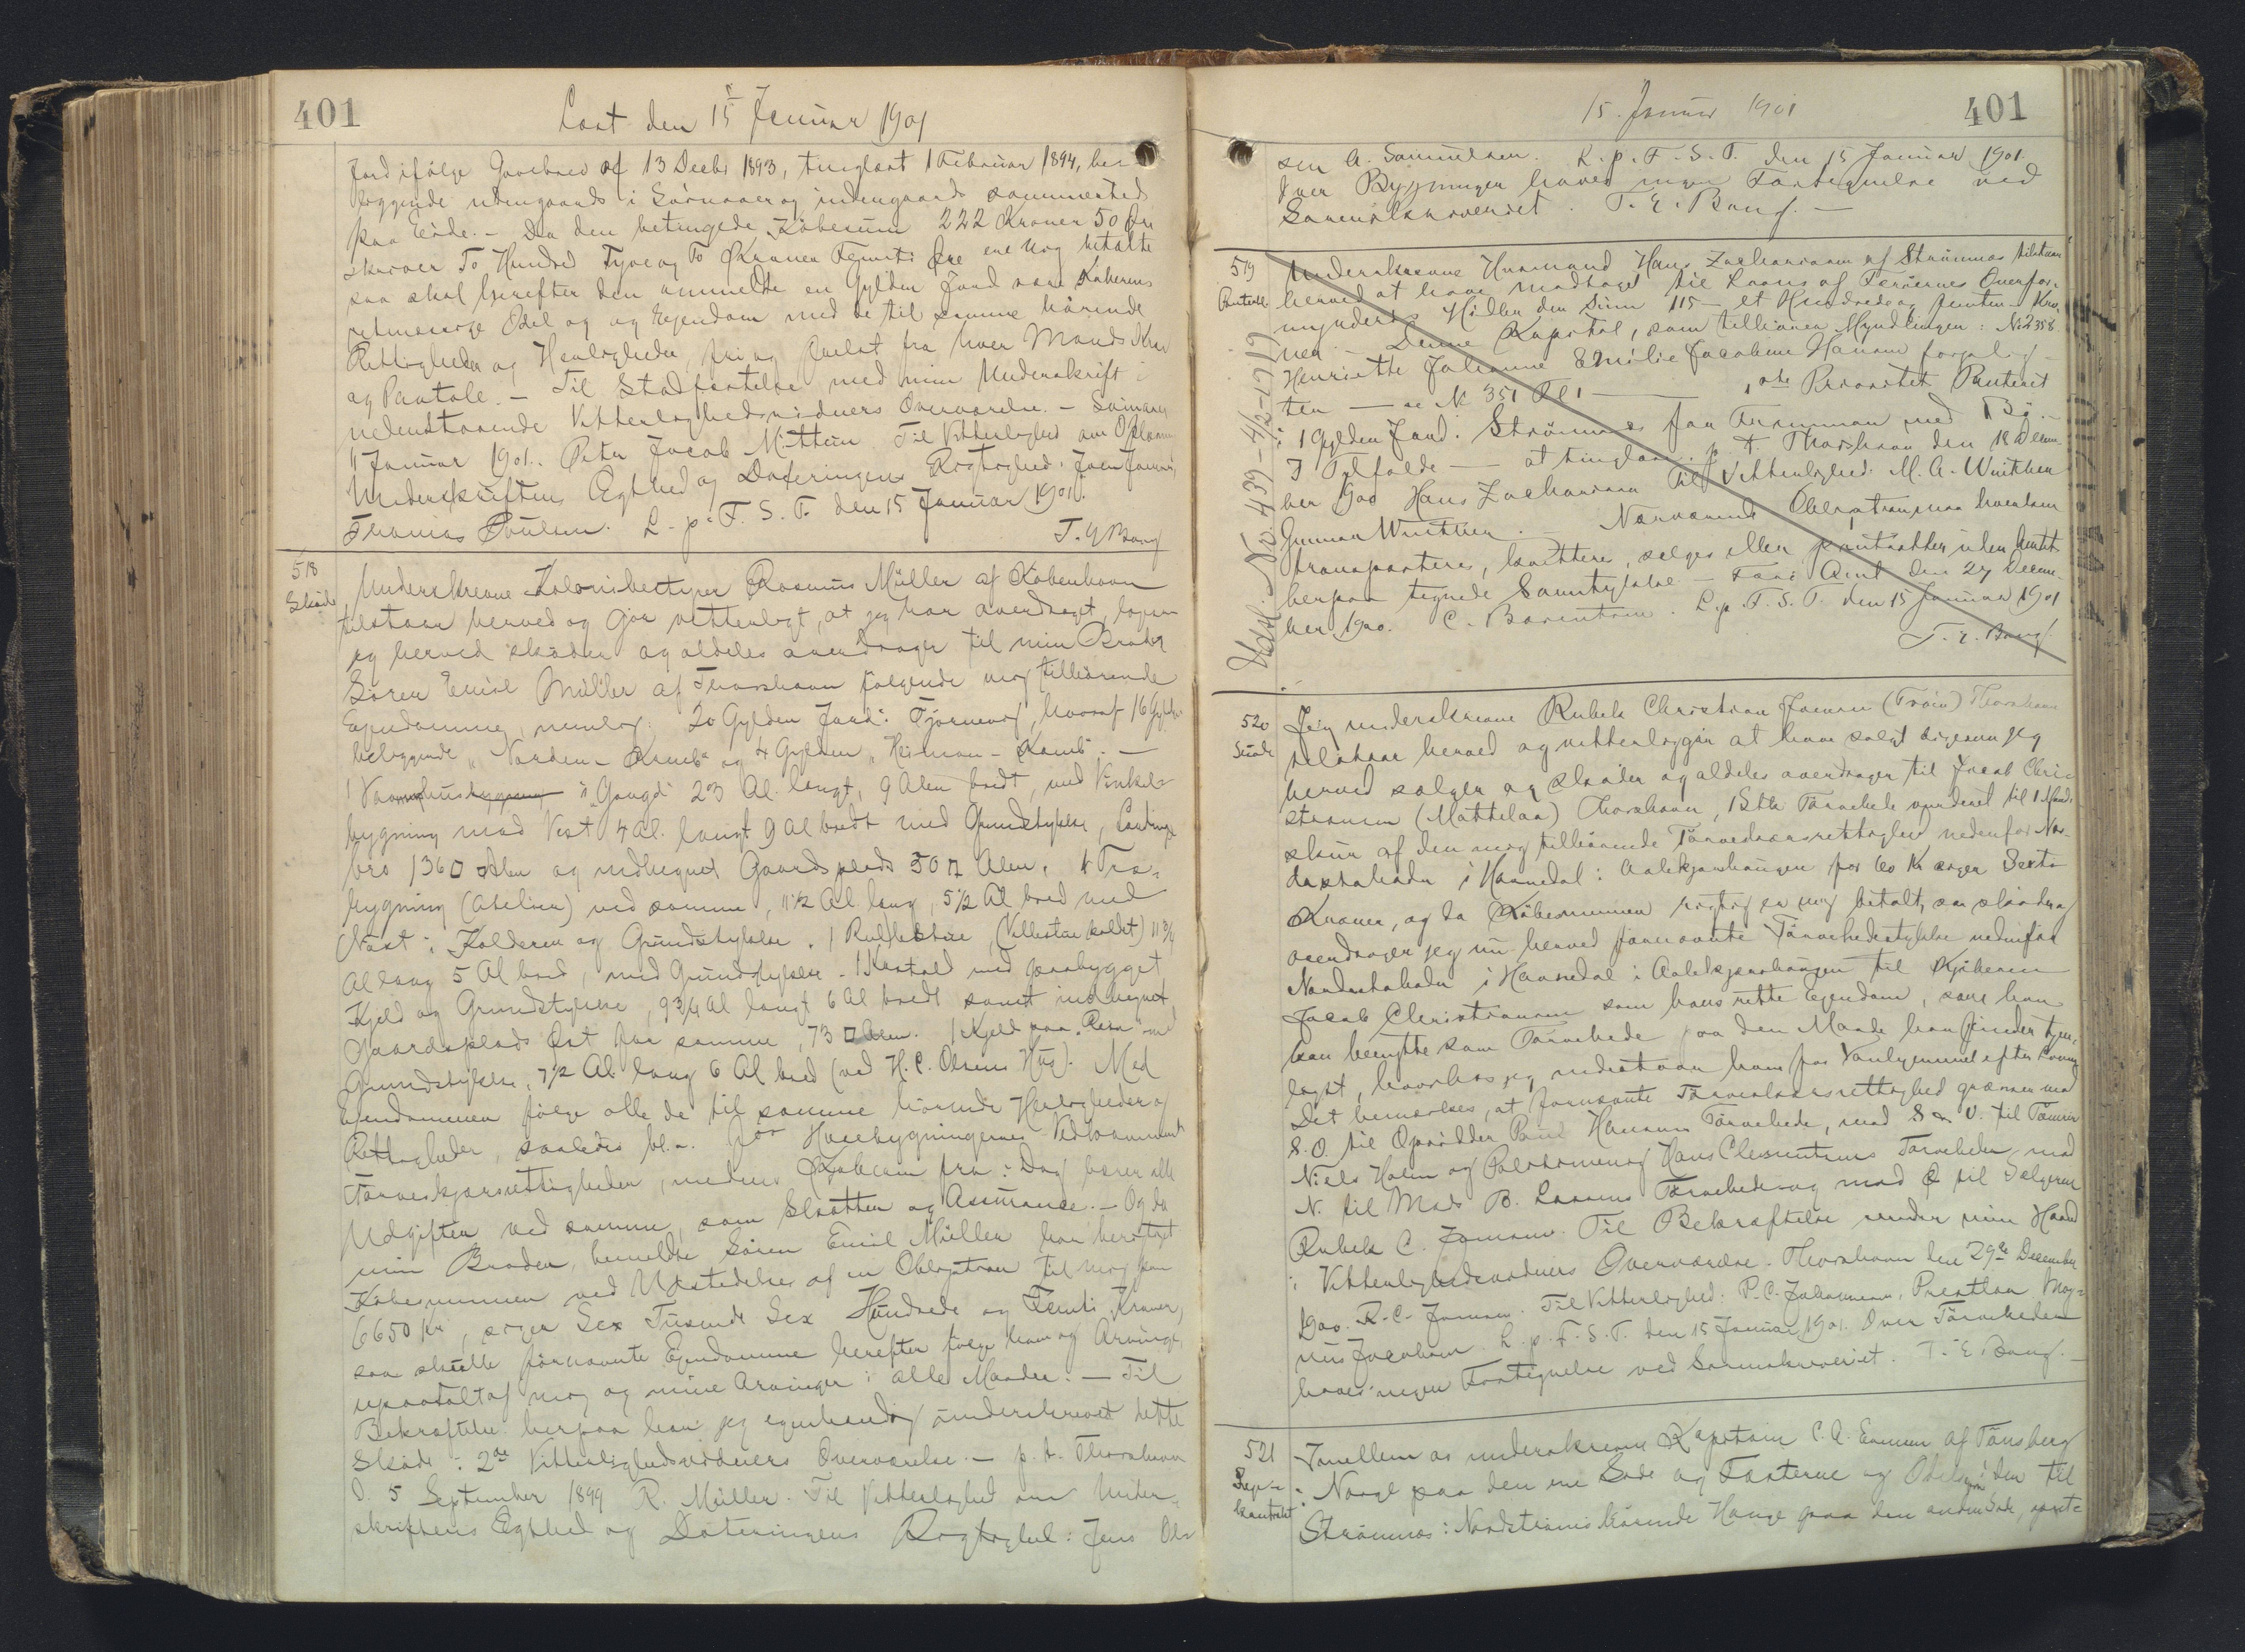 401
Læst den 15 Januar 1901
Jord ifølge Gavebrev af 13 Decbr 1893, tinglæst 1 Februar 1894, be-
liggende udengaards i Sörnaaer og indengaards sammesteds
paa Eide. - Da den betingede Købesum 222 Kroner 50 Øre
skriver To Hundred Tyve og To Kroner Femti Øre ere mig betalte
saa skal herefter den ommeldte en Gylden Jord være Køberens
retmæssige Odel og Eiendom med de til samme hørende
Rettigheder og Herligheder, fri og frelst fra hver Mands Krav
og Paatale. - Til Stadfæstelse med min Underskrift i
nedenstaaende Vitterlighedsvidners Overværelse. -
11 Januar 1901. Peter Jacob Mittein Til Vitterlighed om
Underskriftens Ægthed og Dateringens Rigtighed: Joen
Thomas Poulsen. L. p. F. S. T. den 15 Januar 1901.
T. E. Bang
518
Skøde
Underskrevne Kolonibestyrer Rasmus Müller af København
tilstaar herved og gør vitterligt, at jeg har overdraget, ligesom
jeg herved skøder og aldeles overdrager til min Broder
Sören Emil Müller af Thorshavn følgende mig tilhørende
Ejendomme, nemlig: 20 Gylden Jord i Tjørnevig, hvoraf 16 Gylden
beliggende "Norden-Kamb" og 4 Gylden "Heiman-Kamb". -
1 Vaaningshusbygning i "Gongd" 23 Al. langt, 9 Alen bredt, med Vinkel-
bygning mod Vest 4 Al. langt 9 Al bredt med Grundstykke, Landings
bro 136 □ Alen og indhegnet Gaardsplads 50 □ Alen. 1 Træ-
bygning (Atelier) ved samme, 11½ Al. lang, 5½ Al bred med
Næst i Kælderen og Grundstykke. 1 Rullestue (Villestue kaldet) 11¾
Al lang 5 Al bred, med Grundstykke. - 1 Kostald med paabygget
Kjeld og Grundstykke, 9¾ Al langt 6 Al bredt samt indhegnet
Gaardsplads Øst for samme, 73 □ Alen. 1 Kjeld paa "Rein" med
Grundstykke, 7½ Al. lang 6 Al bred (ved H. C. Olsens Hus). Med
Ejendommen følge alle de til samme hørende Herligheder og
Rettigheder, saaledes bl. a. for Husebygningernes Vedkommende
Tørveskjærsrettigheder, medens Køberen fra i Dag bærer alle
Udgifter ved samme, som Skatter og Assurance. - Og da
min Broder, bemeldte Sören Emil Müller har berigtiget
Købesummen ved Udstedelse af en Obligation til mig paa
6650 Kr, siger Sex Tusinde Sex Hundrede og Femti Kroner,
saa skulle førnævnte Ejendomme herefter følge ham og Arvinger,
upaatalt af mig og mine Arvinger i alle Maader. - Til
Bekræftelse herpaa har jeg egenhændig underskrevet dette
Skøde i 2de Vitterlighedsvidners Overværelse. - p. t. Thorshavn
D. 5 September 1899 R. Müller. Til Vitterlighed om Under-
skriftens Ægthed og Dateringens Rigtighed: Jens
15. Januar 1901
401
sen A. Samuelsen. L. p. F. S. T. den 15 Januar 1901.
Over Bygninger haves ingen Fortegnelse ved
Sorenskriveriet. T. E. Bang. -
519
Panteobl
Underskrevne Husmand Hans Zachariasen af Strømnæs tilstaar
herved at have modtaget til Laans af Færøernes Overfor-
mynderis Midler den Sum 115 - et Hundrede og femten - Kro-
ner - Denne Kapital, som tilhører Myndlingen: No 2358.
Henriette Johanne Emilie Jacobine Hansen forpligt-
ter - se No 351 Pkt 1 - 1ste Prioritets Panteret
i 1 Gylden Jord i Strømnæs
I Tilfælde - at tinglæse. p. t. Thorshavn den 18 Decem-
ber 1900 Hans Zachariasen Til Vitterlighed: M. A. Winther
Gunnar Winther. Nærværende Obligation maa hverken
transporteres, kvitteres, sælges eller pantsættes uden Amtets
herpaa tegnede Samtykke. - Færø Amt den 27 Decem-
ber 1900. C. Bærentsen. L. p. F. S. T. den 15 Januar 1901
T. E. Bang
Udsl. No. 439 - 4/2-1919
520
Skøde
Jeg underskrevne Rubek Christian Jensen (Tróin) Thorshavn
tilstaar herved og vitterliggør at have solgt ligesom jeg
herved sælger og skøder og aldeles overdrager til Jacob Chri-
stiansen (Mattelaa) Thorshavn, 1 Stk Tørvehede vurderet til 1 Mands
skur af den mig tilhørende Tørveskærsrettighed nedenfor Nor-
dastahadn i Havnedal i Aalekjærshaugen for 60 Kr siger Sexti
Kroner, og da Købesummen rigtig er mig betalt, saa skøder og
overdrager jeg nu herved førnævnte Tørvehedestykke nedenfor
Nordastahadn i Havnedal i Aalekjærshaugen til Kjøberen
Jacob Christiansen som hans rette Ejendom, som han
kan benytte som Tørvehede paa den Maade han finder tjen-
ligst, hvorhos jeg indestaar ham for Vanhjemmel efter Loven
Det bemærkes, at førnævnte Tørveskærsrettighed grænser mod
S. O. til Opsidder Poul Hansens Tørvehede, mod S & V. til Tømrer
Niels Holm og Hans Clementsens Tørveheder, mod
N. til Mads B. Larsens Tørvehede og mod Ø til Sælgeren
Rubek C. Jensen. Til Bekræftelse under min Haand
i Vitterlighedsvidners Overværelse. Thorshavn den 29de December
1900. R. C. Jensen. Til Vitterlighed: P. C. Johannesen, Mag-
nus Jacobsen. L. p. F. S. T. den 15 Januar 1901. Over Tørveheden
haves ingen Fortegnelse ved Sorenskriveriet. T. E. Bang. -
521
Leje-
kontrakt
Imellem os underskrevne Kaptain C. A. Evensen af Tönsberg
i Norge paa den ene Side og Fæsterne og Odelsmænd i den til
Strømnæs i Nordstrømø hørende Hauge paa den anden Side,